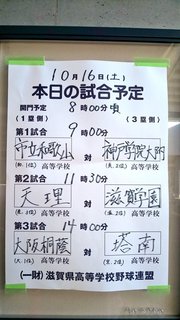 10月16日(土)
本日の試合予定
開門予定 8時00分頃
(1塁側) (3塁側)
第1試合 9時00分
市立和歌山 対 神戸学院大附
(和.1位) 高等学校 高等学校
第2試合 11時30分
天理 対 滋賀学園
高等学校 高等学校
第3試合 14時00分
大阪桐蔭 対 塔南
(大.1位) 高等学校 高等学校
(一財)滋賀県高等学校野球連盟